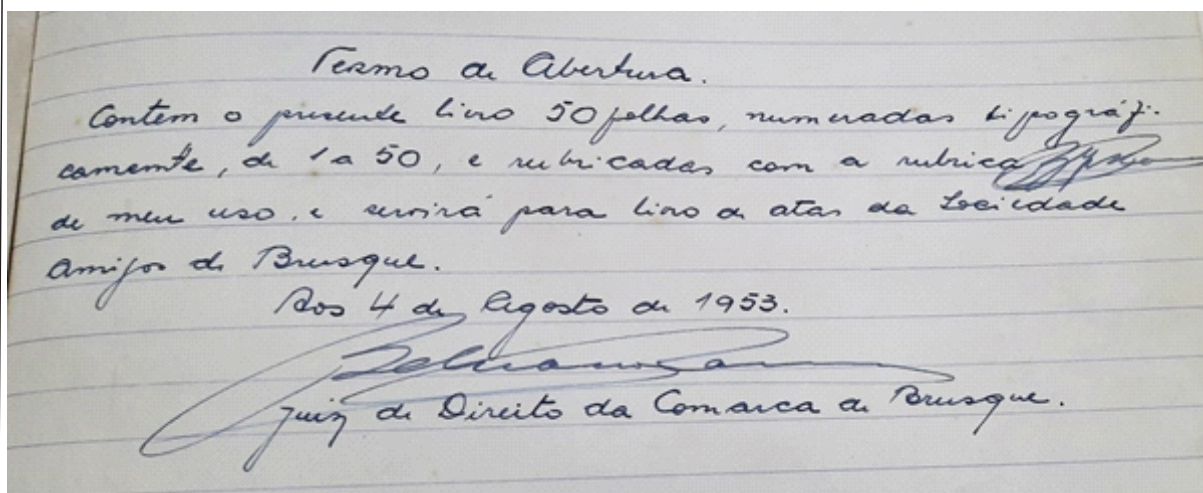 Termo de Abertura.
Contem o presente livro 50 folhas, numeradas tipográfi-
camente, de 1 a 50, e rubricadas com a rubrica
de meu uso, e servirá para livro de atas da Sociedade
Amigos de Brusque.
Aos 4 de Agosto de 1953.
Juiz de Direito da Comarca de Brusque.